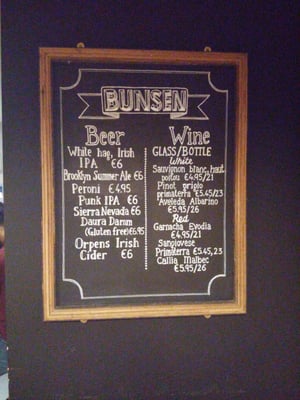 BUNSEN
Beer
White hag, Irish
IPA €6
Brooklyn Summer Ale €6
Peroni €4.95
Punk IPA €6
Sierra Nevada €6
Daura Damm
(Gluten free) €6.95
Orpens Irish
Cider €6
Wine
GLASS/BOTTLE
White
Sauvignon blanc, haut
poitou €4.95/21
Pinot grigio
primaterra €5.45/23
Aveleda Albarino
€5.95/26
Red
Garnacha Evodia
€4.95/21
Sangiovese
Primaterra €5.45,23
Callia Malbec
€5.95/26